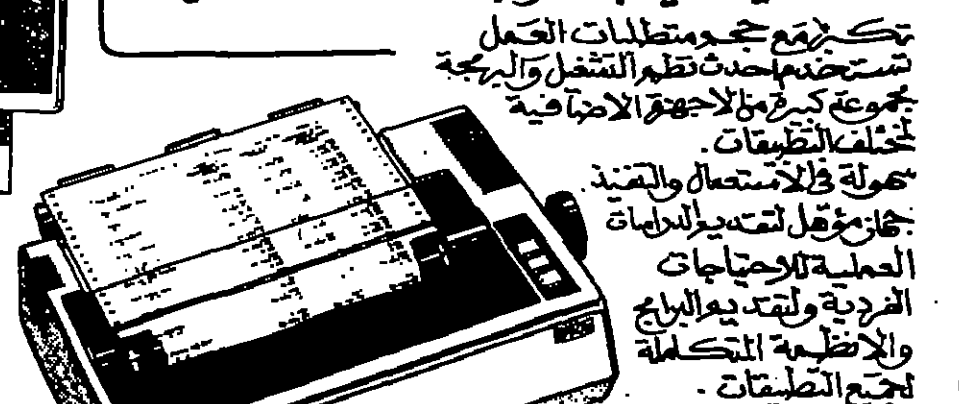 تكبر مع حجم متطلبات العمل
تستخدم احدث نظم التشغيل والبرمجة
مجموعة كبيرة من الاجهزة الاضافية
لمختلف التطبيقات .
سهولة في الاستعمال والتنفيذ .
جهاز مؤهل لتقديم الدراسات
العملية للاحتياجات
الفردية ولتقديم البرامج
والانظمة المتكاملة
لجميع التطبيقات .